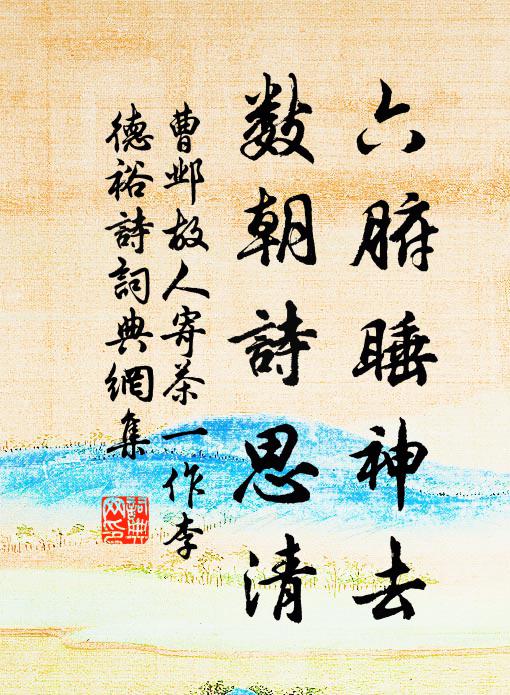 六腑睡神去
數朝詩思清
曹邺故人寄茶一作李
德裕詩詞典網集